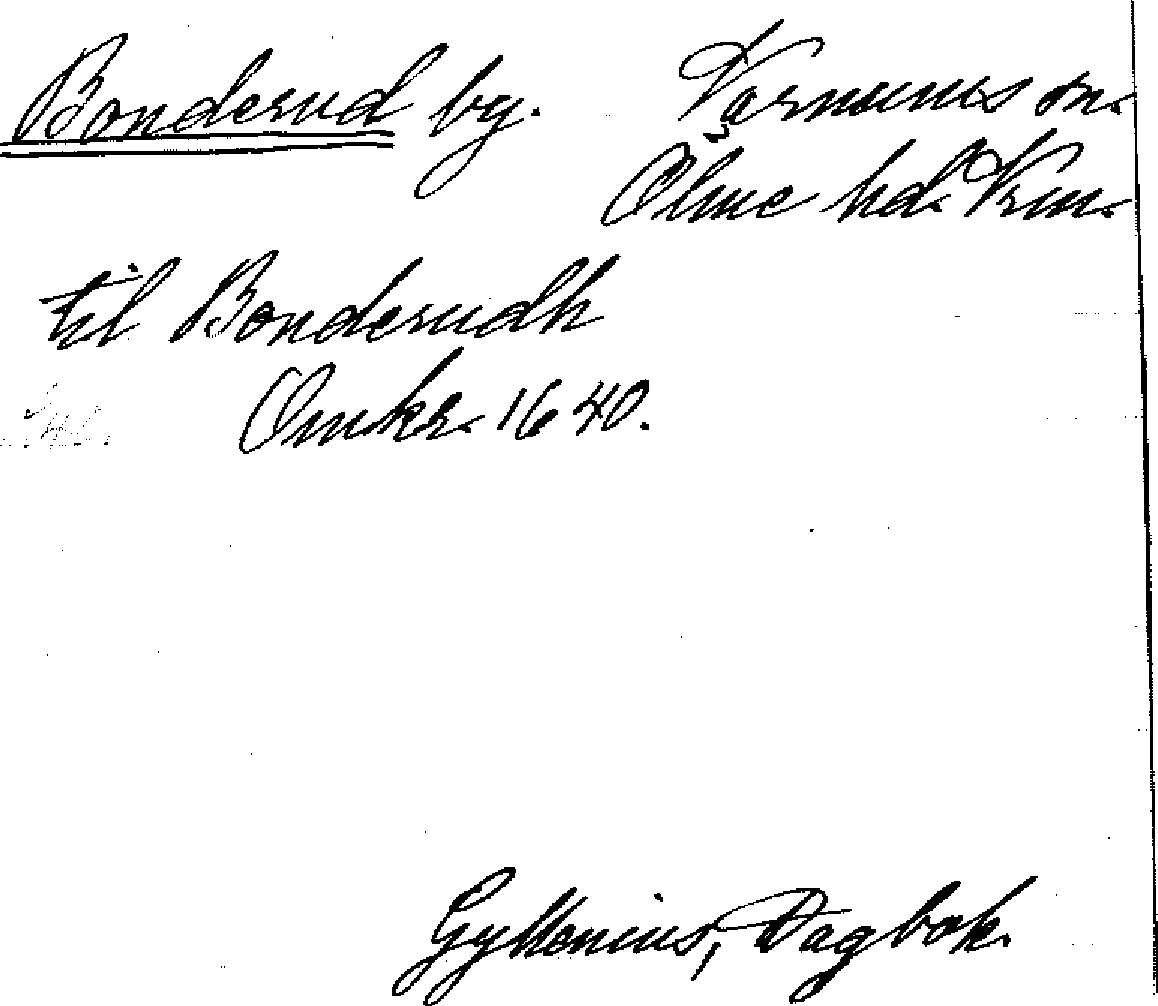 Bonderud by. Varnums sn.
Ölme hd. Vrm.
til Bonderudh
Omkr. 1640.
Gyllenius, Dagbok.